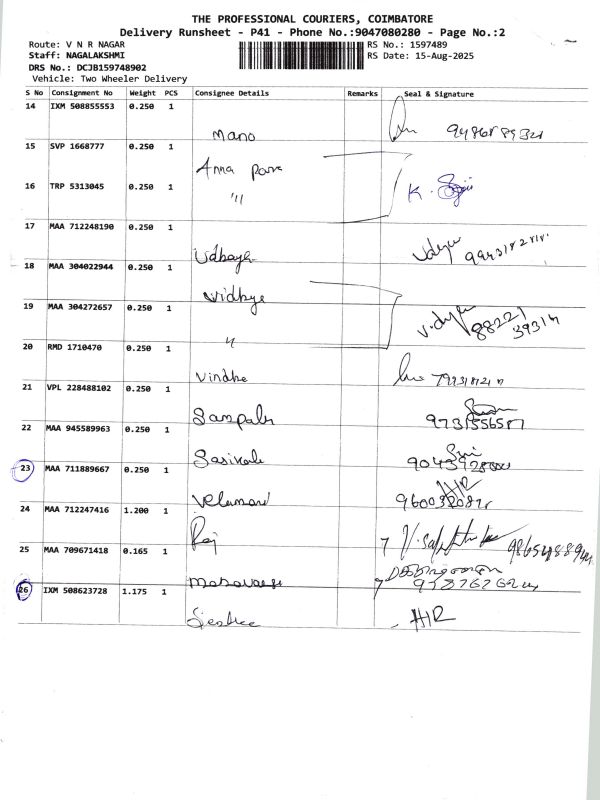 THE PROFESSIONAL COURIERS, COIMBATORE
Delivery Runsheet - P41 - Phone No.:9047080280 - Page No.:2
Route: V N R NAGAR
RS No.: 1597489
Staff: NAGALAKSHMI
RS Date: 15-Aug-2025
DRS No.: DCJB159748902
Vehicle: Two Wheeler Delivery
S No Consignment No Weight PCS Consignee Details Remarks Seal & Signature
14 IXM 508855553 0.250 1
Mano
15 SVP 1668777 0.250 1
Anna
16 TRP 5313045 0.250 1
"
K.
17 MAA 712248190 0.250 1
18 MAA 304022944 0.250 1
Vidhya
19 MAA 304272657 0.250 1
"
Vidya 88221
39314
20 RMD 1710470 0.250 1
21 VPL 228488102 0.250 1
22 MAA 945589963 0.250 1
Sasikala
23 MAA 711889667 0.250 1
H/R
Velumani
24 MAA 712247416 1.200 1
Raj
25 MAA 709671418 0.165 1
26 IXM 508623728 1.175 1
H/R